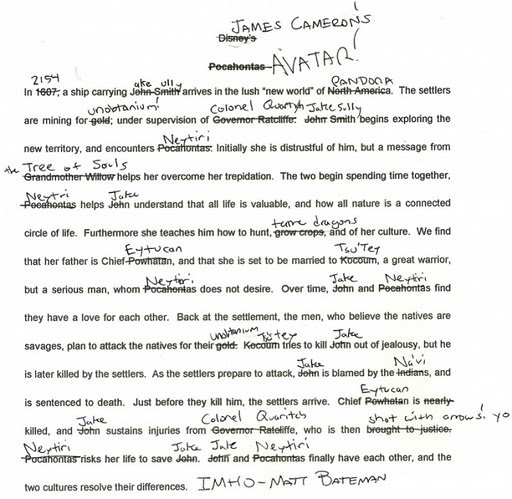 JAMES CAMERON'S
Disney's
Pocahontas AVATAR!
2154 ake ully PANDORA
In 1607, a ship carrying John Smith arrives in the lush "new world" of North America. The settlers
unobtanium! Colonel Quartch Jake Sully
are mining for gold, under supervision of Governor Ratcliffe. John Smith begins exploring the
Neytiri
new territory, and encounters Pocahontas. Initially she is distrustful of him, but a message from
the Tree of Souls
Grandmother Willow helps her overcome her trepidation. The two begin spending time together,
Neytri Jake
Pocahontas helps John understand that all life is valuable, and how all nature is a connected
tame dragons
circle of life. Furthermore she teaches him how to hunt, grow crops, and of her culture. We find
Eytucan Tsu'Tey
that her father is Chief Powhatan, and that she is set to be married to Kocoum, a great warrior,
Neytiri Jake Neytiri
but a serious man, whom Pocahontas does not desire. Over time, John and Pocahontas find
they have a love for each other. Back at the settlement, the men, who believe the natives are
unobtanium Ts'tey Jake
savages, plan to attack the natives for their gold. Kocoum tries to kill John out of jealousy, but he
Jake Na'vi
is later killed by the settlers. As the settlers prepare to attack, John is blamed by the Indians, and
Eytucan
is sentenced to death. Just before they kill him, the settlers arrive. Chief Powhatan is nearly
Jake Colonel Quaritch shot with arrows! yo
killed, and John sustains injuries from Governor Ratcliffe, who is then brought to justice.
Neytiri Jake Jake Neytiri
Pocahontas risks her life to save John. John and Pocahontas finally have each other, and the
two cultures resolve their differences. IMHO-MATT BATEMAN